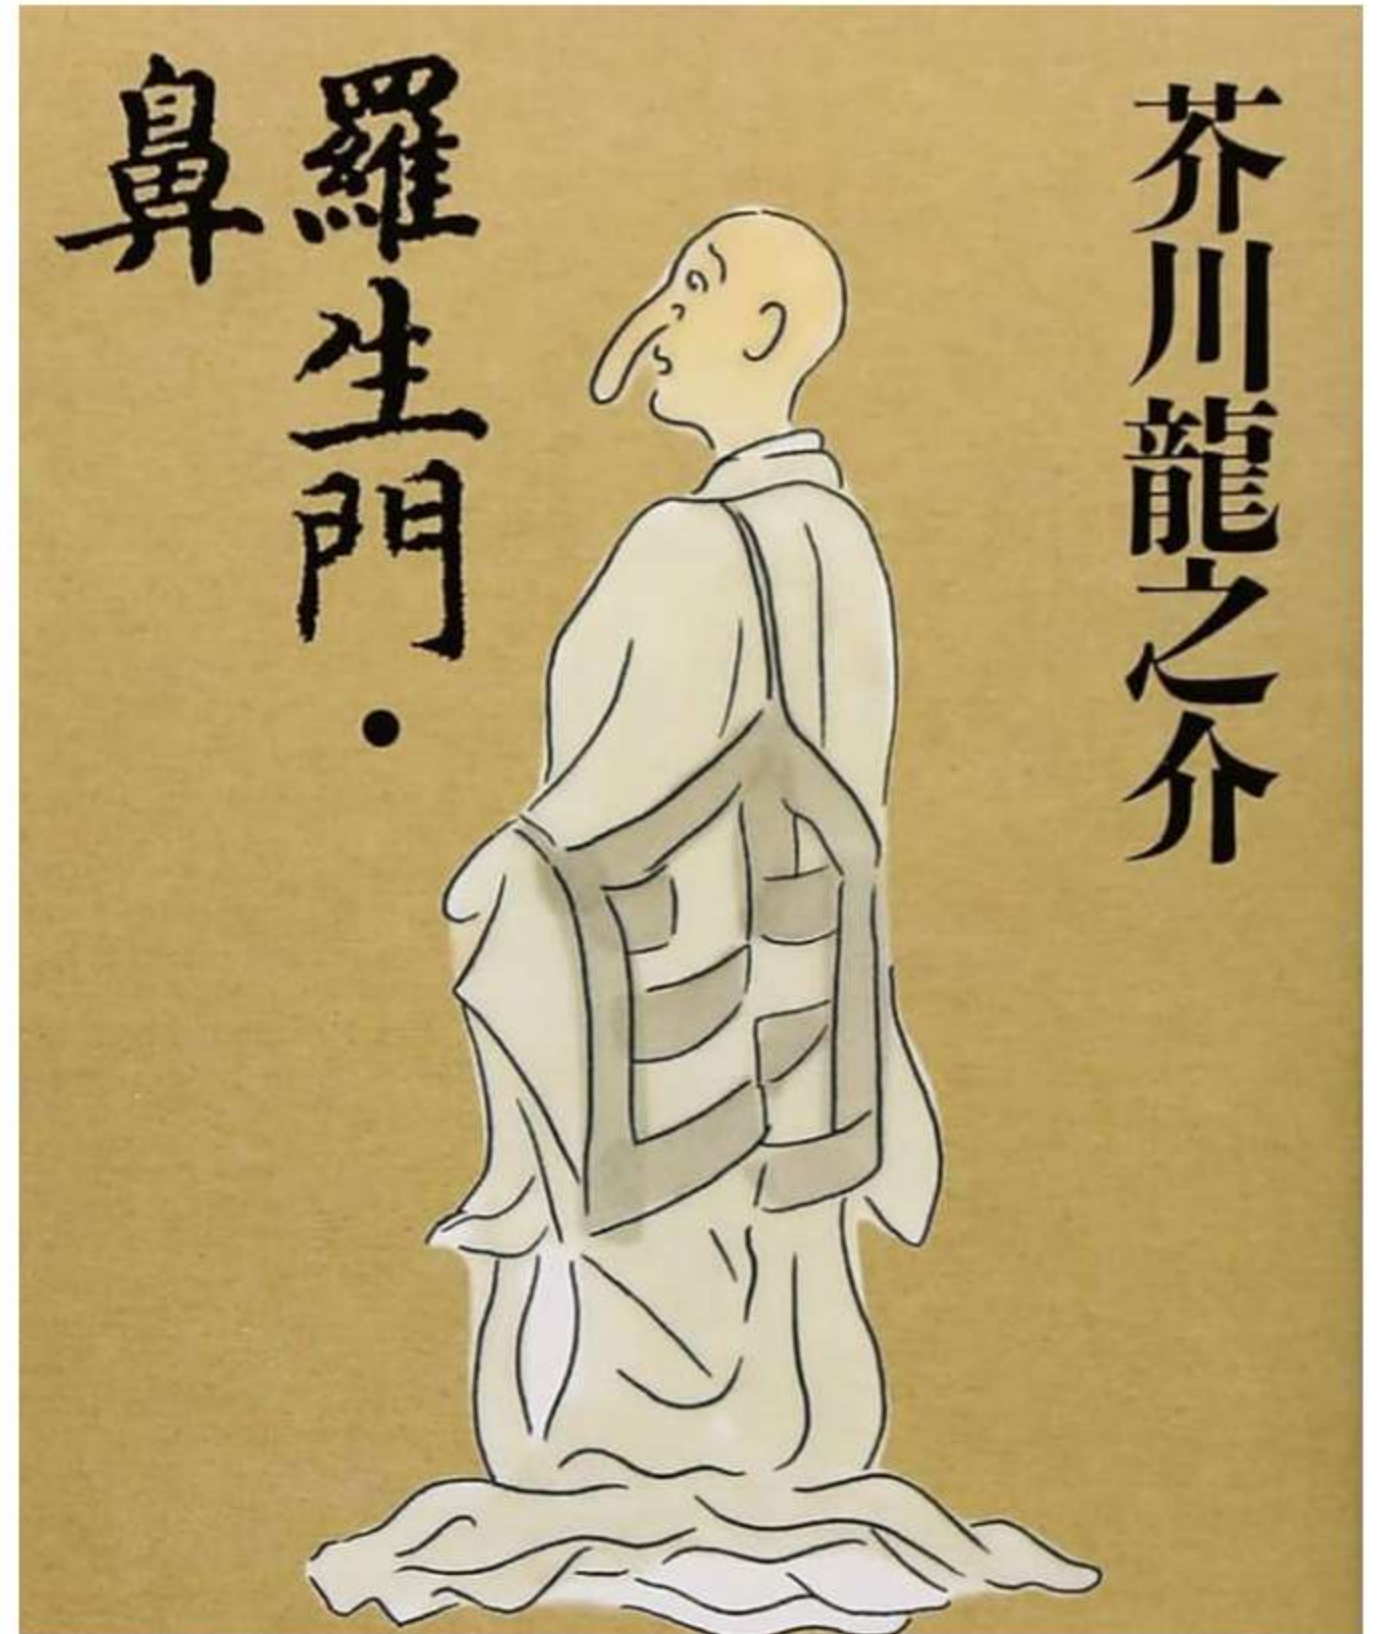 芥川龍之介
羅生門・
鼻